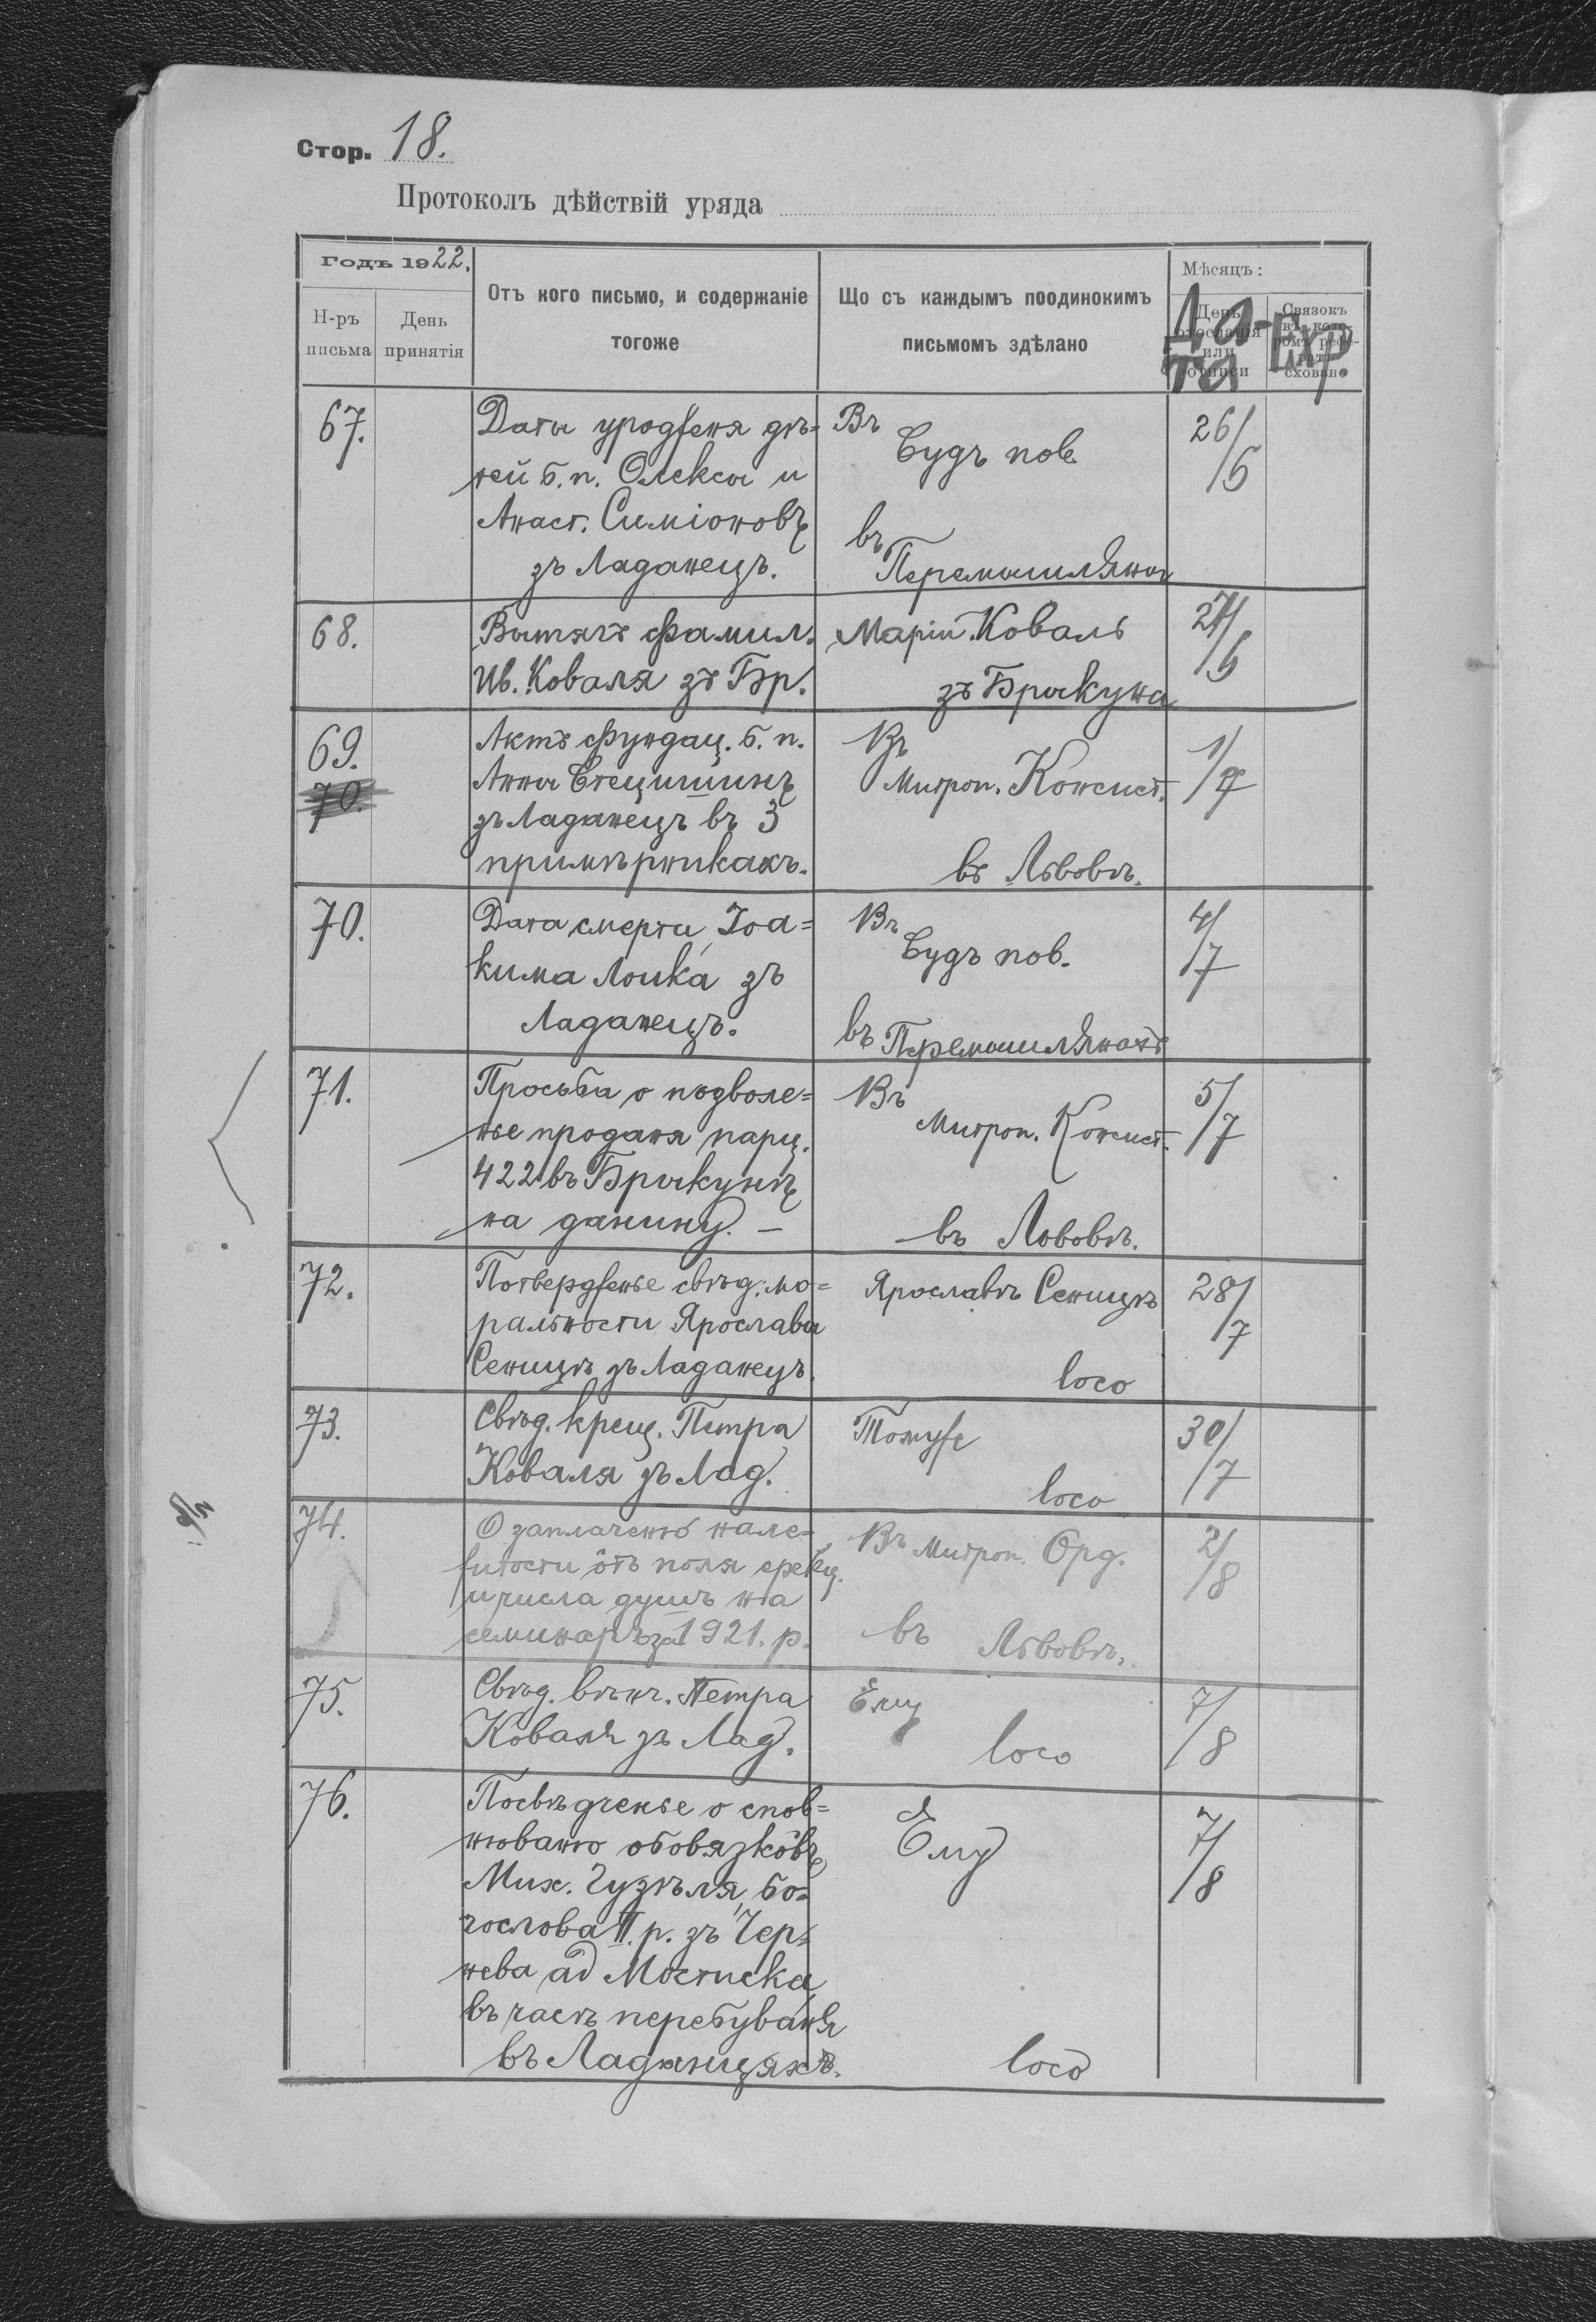 Стор. 18.
Протоколъ дѣйствій уряда
Годъ 1922.
Н-ръ письма
День принятія
Отъ кого письмо, и содержаніе
тогоже
Що съ каждымъ поодинокимъ
письмомъ здѣлано
Мѣсяцъ:
День отосланія или отписи
Связокъ въ котромъ реферат сховано
Да-
та
Екр
67.
Даты уродженя дѣ-
тей б. п. Олексы и
Анаст. Симіоновъ
зъ Ладанецъ.
Въ
Судъ пов.
въ
Перемышляны
26/6
68.
Вытягъ фамил.
Ив. Коваля зъ Бр.
Маріи Коваль
зъ Брыкуна
27/6
69.
70.
Актъ фундац. б. п.
Анны Стецишинъ
зъ Ладанецъ въ 3
примѣрникахъ.
Въ
Митроп. Консист.
въ Львовѣ.
1/7
70.
Дата смерти Іоа-
кима Лоика зъ
Ладанецъ.
Въ
Судъ пов.
въ Перемышлянахъ
4/7
71.
Просьба о подволе-
нье проданя парц.
422 въ Брыкунѣ
на данину. –
Въ
Митроп. Консист.
въ Львовѣ.
5/7
72.
Потвердженье свѣд. мо-
ральности Ярослава
Сеницѣ зъ Ладанецъ.
Ярославъ Сеницѣ
loco
28/7
73.
Свѣд. крещ. Петра
Коваля зъ Лад.
Томуже
loco
30/7
74.
О заплаченю нале-
житости ôтъ поля ерекц.
и числа душъ на
семинаръ за 1921. р.
Въ Митроп. Орд.
въ Львовѣ.
2/8
75.
Свѣд. вѣнч. Петра
Коваля зъ Лад.
Ему
loco
7/8
76.
Посвѣдченье о спов-
нюваню обовязкôвъ
Мих. Гузѣля, бо-
гослова II. р. зъ Чер-
нева ad Мостиска
въ часѣ перебуваня
въ Ладанцяхъ.
Ему
loco
7/8